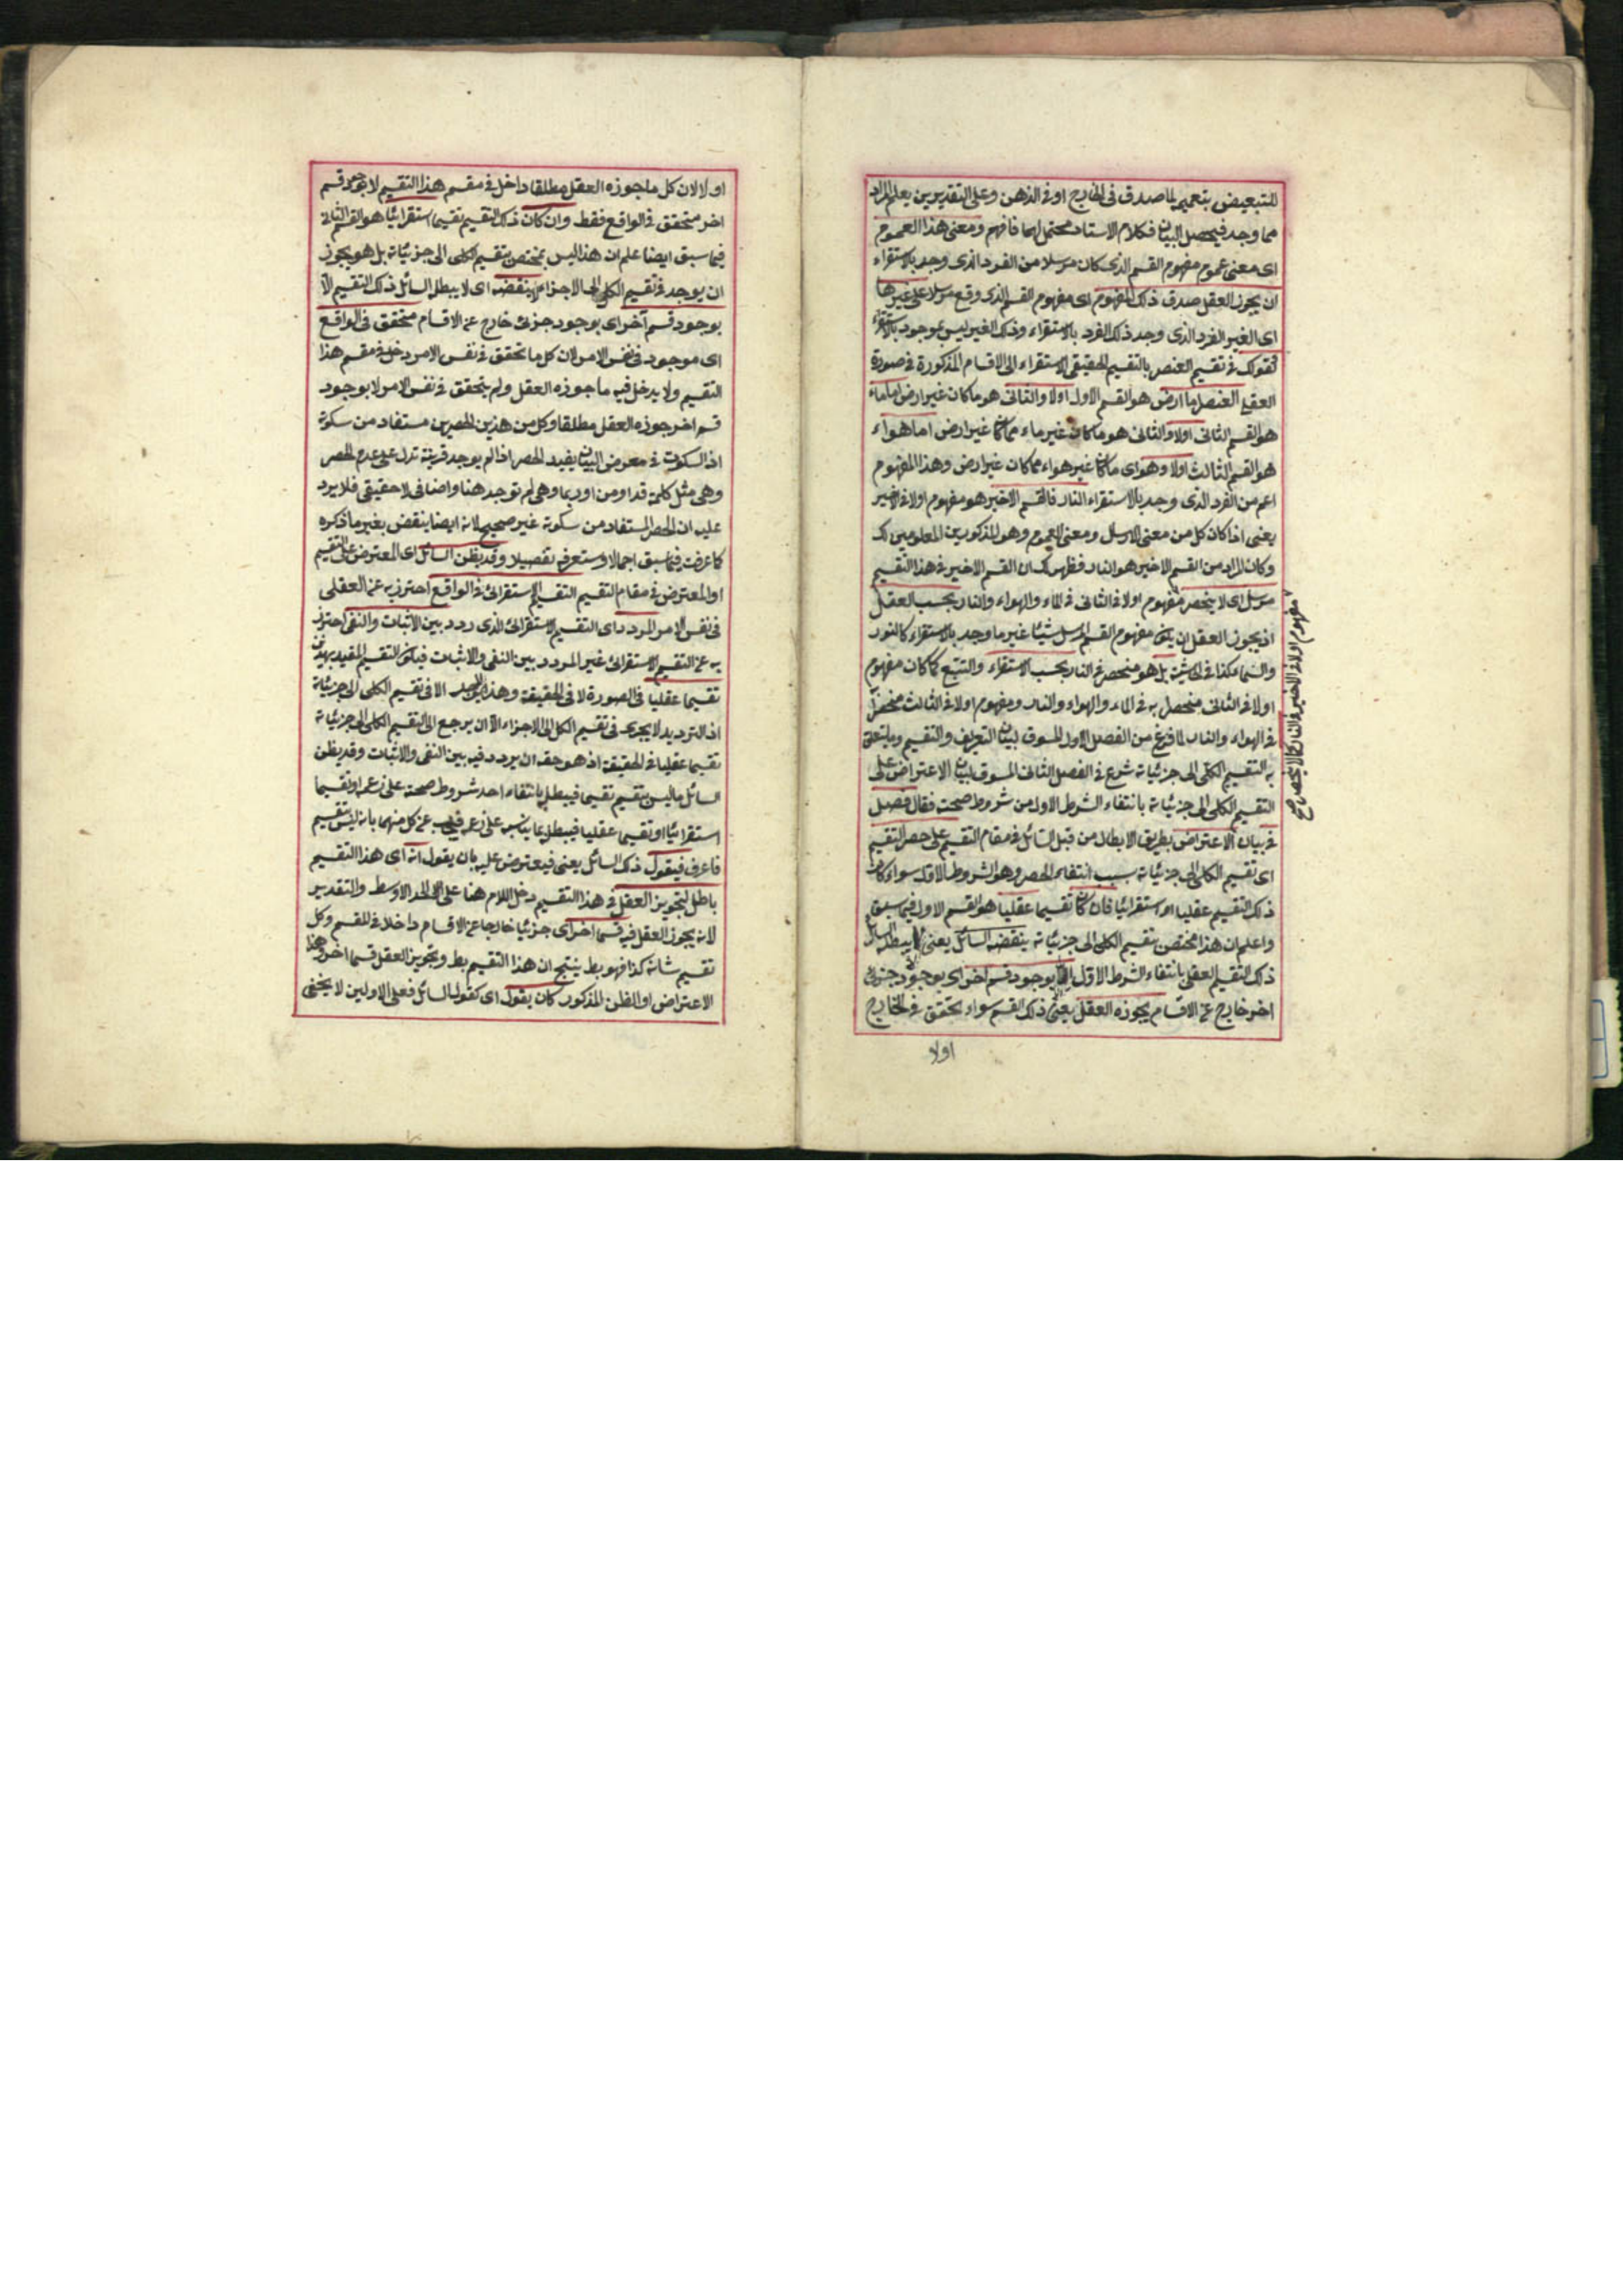 للتبعيض بتعميم ما صدق فى الخارج او فى الذهن وعلى التقديرين يعلم المراد
مما وجد فيحصل البيان فكلام الاستاد محتمل لهما فافهم ومعنى هذا العموم
اى معنى عموم مفهوم القسم الذى كان مرسلا من الفرد الذى وجد بالاستقراء
ان يجوز العقل صدق ذلك المفهوم اى مفهوم القسم الذى وقع مرسلا على غيرها
اى الغير الفرد الذى وجد ذلك الفرد بالاستقراء وذلك الغير ليس بموجود بالاستقراء
كقولك فى تقسيم العنصر بالتقسيم الحقيقى الاستقراء الى الاقسام المذكورة فى صورة
العقلى العنصر اما ارض هو القسم الاول اولا والثانى هو ما كان غير ارض اما ماء
هو القسم الثانى اولا والثانى هو ما كان غير ماء مما كان غير ارض اما هواء
هو القسم الثالث اولا وهو اى ما كان غير هواء مما كان غير ارض وهذا المفهوم
اعم من الفرد الذى وجد بالاستقراء النار فالقسم الاخير هو مفهوم اولا فى الاخير
يعنى اذا كان كل من معنى الارسال ومعنى العموم وهو المذكورين المعلومين لك
وكان المراد من القسم الاخير هو النار فظهر لك ان القسم الاخير فى هذا التقسيم
مرسل اى لا ينحصر مفهوم اولا فى الثانى فى الماء والهواء والنار بحسب العقل
اذ يجوز العقل ان يكون مفهوم القسم المرسل شيئا غير ما وجد بالاستقراء كالنور
والسماء كذا فى الحاشية بل هو منحصر فى النار بحسب الاستقراء والتتبع كما كان مفهوم
اولا فى الثانى منحصرا به فى الماء والهواء والنار ومفهوم اولا فى الثالث منحصرا
فى الهواء والنار لما فرغ من الفصل الاول المسوق لبيان التعريف والتقسيم وما يتعلق
به التقسيم الكلى الى جزئياته شرع فى الفصل الثانى المسوق لبيان الاعتراض على
التقسيم الكلى الى جزئياته بانتفاء الشرط الاول من شروط صحته فقال فصل
فى بيان الاعتراض بطريق الابطال من قبل السائل فى مقام التقسيم على حصر التقسيم
اى تقسيم الكلى الى جزئياته بسبب انتفاء الحصر وهو الشروط الاول سواء كان
ذلك التقسيم عقليا او استقرائيا فان كان تقسيما عقليا هو القسم الاول فيما سبق
واعلم ان هذا مختص بتقسيم الكلى الى جزئياته ينقضه السائل يعنى لا يبطل السائل
ذلك التقسيم العقلى بانتفاء الشرط الاول الا بوجود قسم اخر اى بوجود جزئى
اخر خارج عن الاقسام يجوزه العقل يعنى ذلك القسم سواء تحقق فى الخارج
اولا
مفهوم اولا فى الاخير فى النار كالانحصار صح
اولا لان كل ما جوزه العقل مطلقا داخل فى مقسم هذا التقسيم لا بوجود قسم
اخر متحقق فى الواقع فقط وان كان ذلك التقسيم تقسيما استقرائيا هو القسم الثانى
فيما سبق ايضا علم ان هذا ليس بمختص بتقسيم الكلى الى جزئياته بل هو يجوز
ان يوجد فى تقسيم الكل الى الاجزاء ينقضه اى لا يبطل السائل ذلك التقسيم الا
بوجود قسم آخر اى بوجود جزئى خارج عن الاقسام متحقق فى الواقع
اى موجود فى نفس الامر لان كل ما تحقق فى نفس الامر دخل فى مقسم هذا
التقسيم ولا يدخل فيه ما جوزه العقل ولم يتحقق فى نفس الامر لا بوجود
قسم اخر جوزه العقل مطلقا وكل من هذين الحصرين مستفاد من سكوته
اذ السكوت فى معرض البيان يفيد الحصر اذا لم يوجد قرينة تدل على عدم الحصر
وهى مثل كلمة قد او من او ربما وهى لم توجد هنا واضافى لا حقيقى فلا يرد
عليه ان الحصر المستفاد من سكوته غير صحيح لانه ايضا ينقض بغير ما ذكره
كما عرفت فيما سبق اجمالا وستعرفه تفصيلا وقد يظن السائل اى المعترض على التقسيم
او المعترض فى مقام التقسيم التقسيم الاستقرائى فى الواقع احترز به عن العقلى
فى نفس الامر المردد اى التقسيم الاستقرائى الذى ردد بين الاثبات والنفى احترز
به عن التقسيم الاستقرائى غير المردد بين النفى والاثبات فيكون التقسيم المقيد بهذين
تقسيما عقليا فى الصورة لا فى الحقيقة وهذا لا يوجد الا فى تقسيم الكلى الى جزئياته
اذ الترديد لا يجرى فى تقسيم الكل الى الاجزاء الا ان يرجع الى التقسيم الكلى الى جزئياته
تقسيما عقليا فى الحقيقة اذ هو حقه ان يردد فيه بين النفى والاثبات وقد يظن
السائل ما ليس بتقسيم تقسيما فيبطل بانتفاء احد شروط صحته على زعمه او تقسيما
استقرائيا او تقسيما عقليا فيبطل بما يناسبه على زعمه فيجب عن كل منهما بانه ليس بتقسيم
فاعرف فيقول ذلك السائل يعنى فيعترض عليه بان يقول انه اى هذا التقسيم
باطل لتجويز العقل فى هذا التقسيم دخل اللام هنا على الحد الاوسط والتقدير
لانه يجوز العقل فيه قسما اخر اى جزئيا خارجا عن الاقسام داخلا فى المقسم وكل
تقسيم شانه كذا فهو بط ينتج ان هذا التقسيم بط وتجويز العقل قسما اخر وهذا
الاعتراض او الظن المذكور كان يقول اى كقول السائل فعلى الاولين لا يخفى